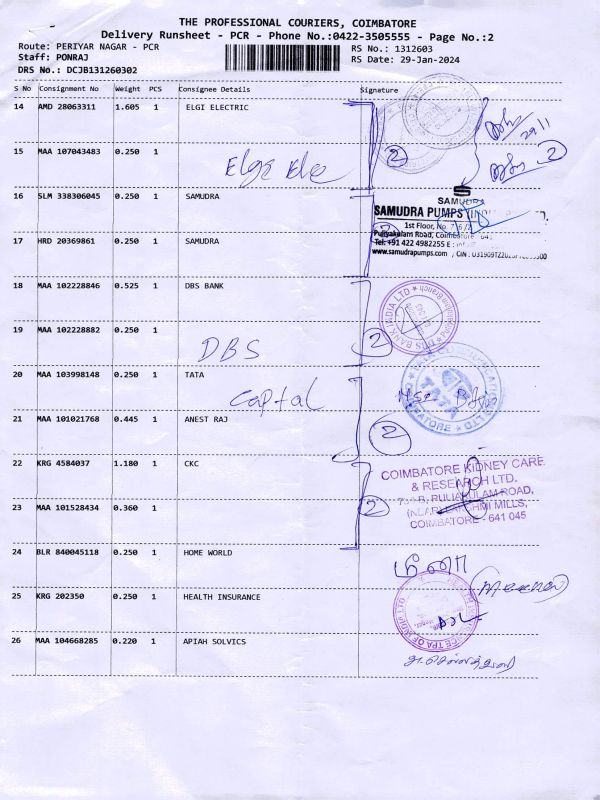 THE PROFESSIONAL COURIERS, COIMBATORE
Delivery Runsheet - PCR - Phone No.:0422-3505555 - Page No.:2
Route: PERIYAR NAGAR - PCR
RS No.: 1312603
Staff: PONRAJ
RS Date: 29-Jan-2024
DRS No.: DCJB131260302
S No Consignment No Weight PCS Consignee Details Signature
14 AMD 28063311 1.605 1 ELGI ELECTRIC
15 MAA 107043483 0.250 1
Elgi Ele
2
2
16 SLM 338306045 0.250 1 SAMUDRA
SAMUDRA
SAMUDRA PUMPS
1st Floor, No.
17 HRD 20369861 0.250 1 SAMUDRA
Puliyakulam Road, Coimbatore
Tel: +91 422 4982255
www.samudrapumps.com
18 MAA 102228846 0.525 1 DBS BANK
DBS BANK INDIA LTD
19 MAA 102228882 0.250 1
DBS
2
20 MAA 103998148 0.250 1 TATA
Captal
TATA
21 MAA 101021768 0.445 1 ANEST RAJ
2
22 KRG 4584037 1.180 1 CKC
COIMBATORE KIDNEY CARE
& RESEARCH LTD.
PULIAKULAM ROAD,
23 MAA 101528434 0.360 1
2
MILLS,
COIMBATORE - 641 045
24 BLR 840045118 0.250 1 HOME WORLD
மீனா
25 KRG 202350 0.250 1 HEALTH INSURANCE
26 MAA 104668285 0.220 1 APIAH SOLVICS